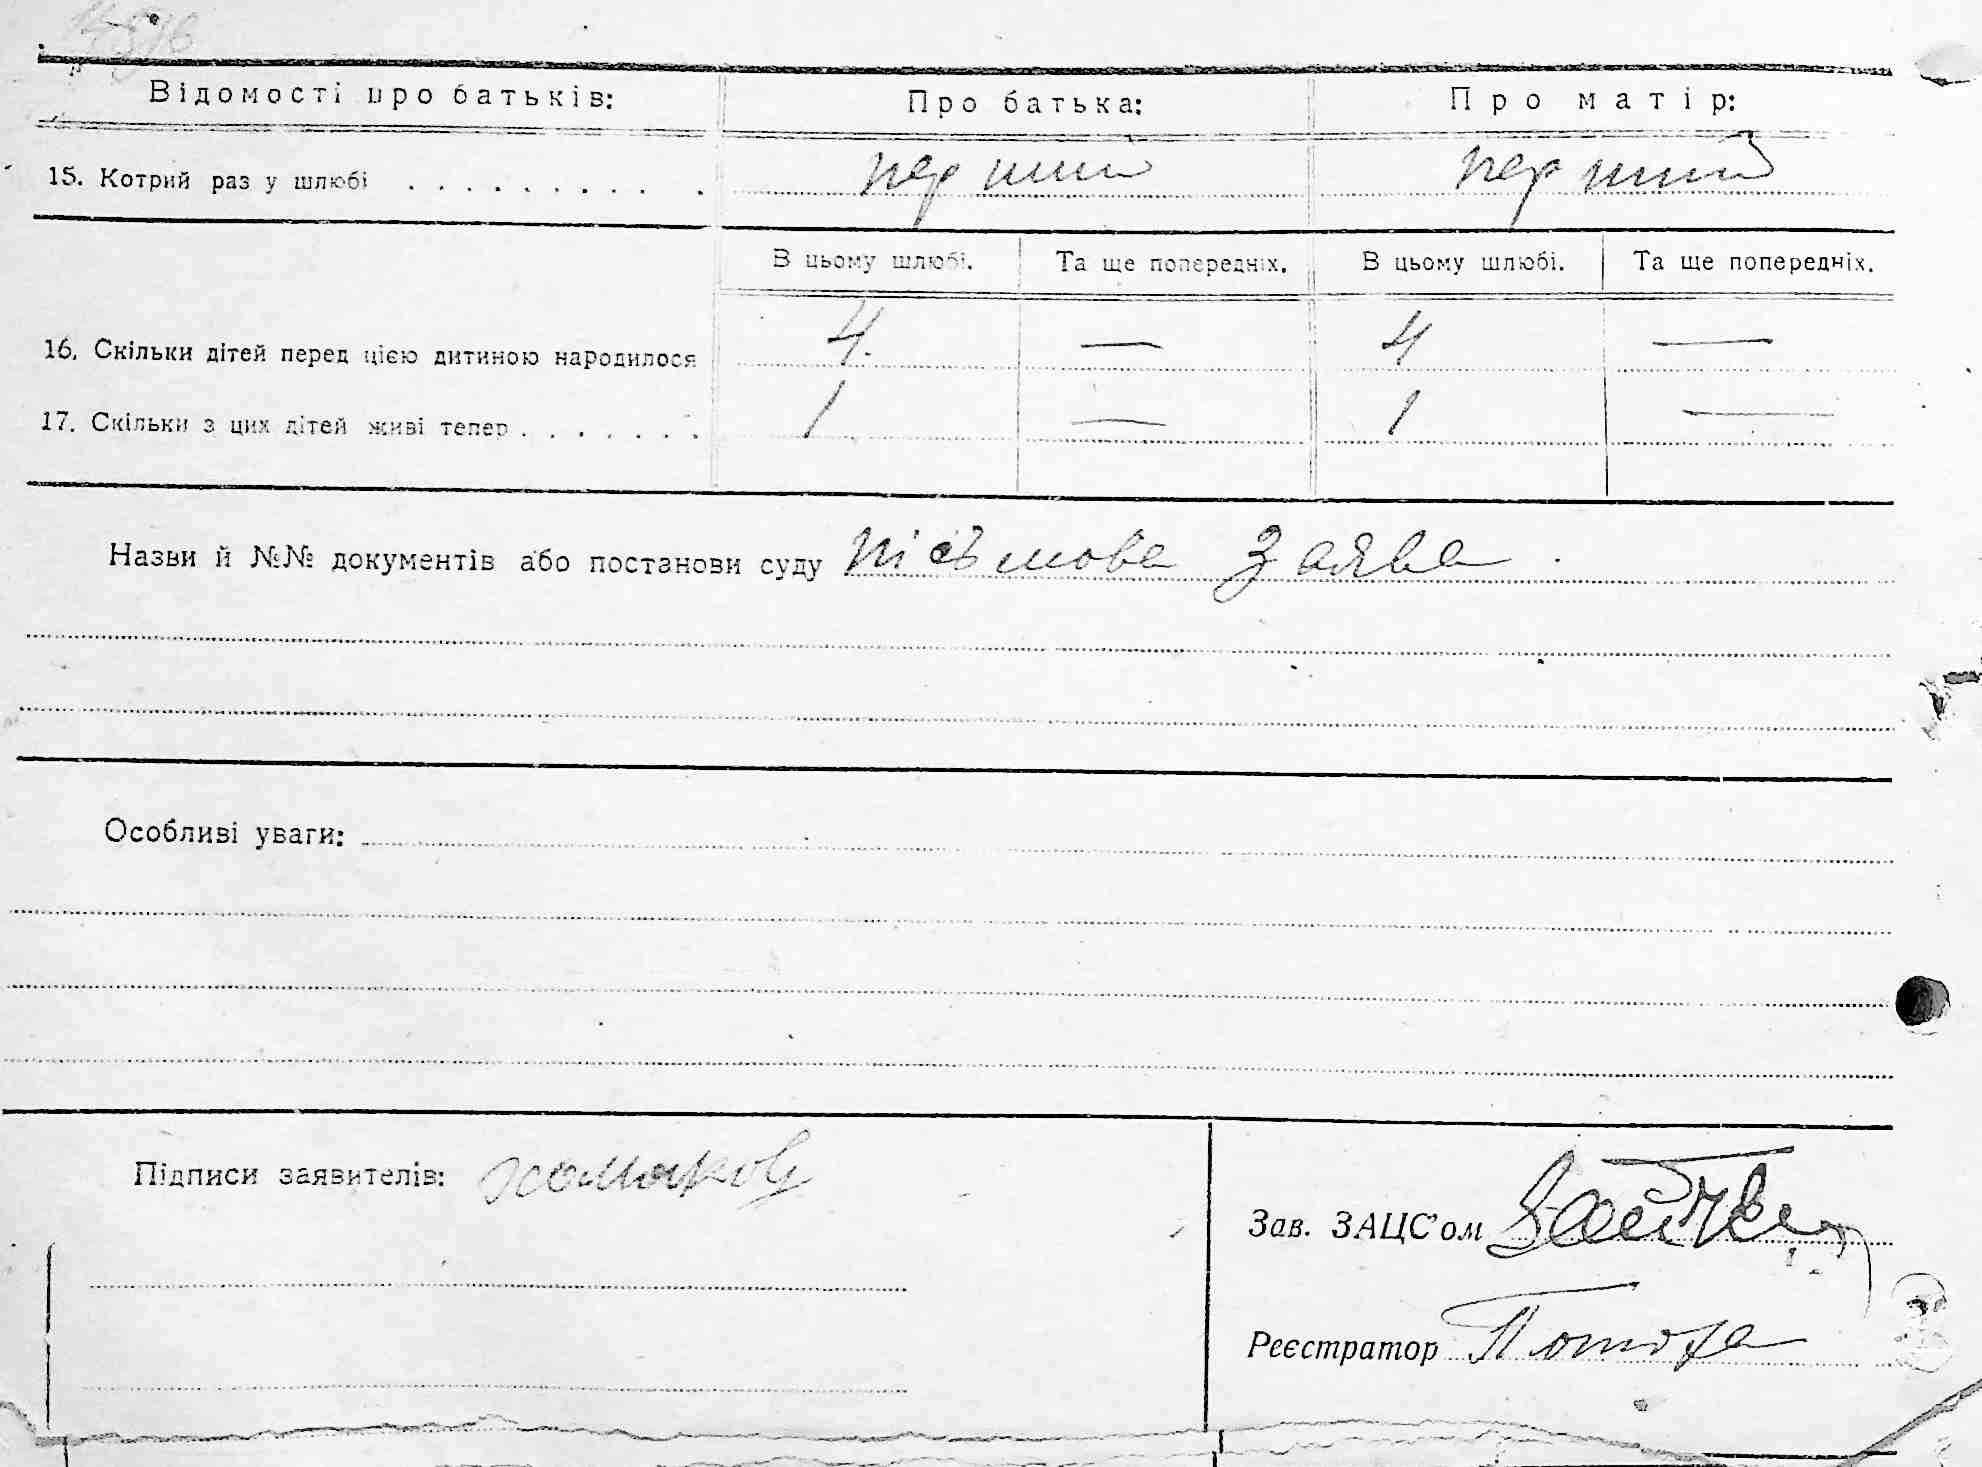 Відомості про батьків: Про батька: Про матір:
15. Котрий раз у шлюбі . . . . . . . . . . перший перший
В цьому шлюбі. Та ще попередніх. В цьому шлюбі. Та ще попередніх.
16. Скільки дітей перед цією дитиною народилося 4. — 4 —
17. Скільки з цих дітей живі тепер . . . . . . . 1 — 1 —
Назви й №№ документів або постанови суду пісьмова заява.
Особливі уваги:
Підписи заявителів:
Зав. ЗАЦС'ом
Реєстратор